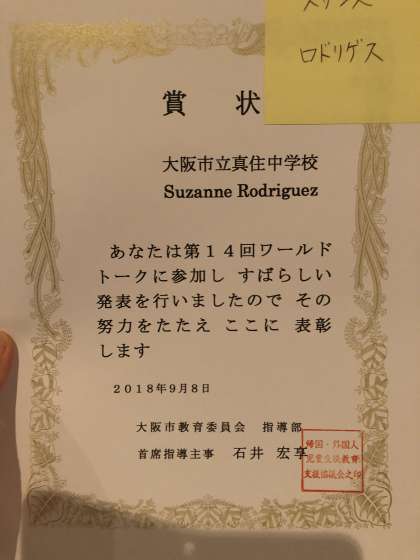 スザンヌ
ロドリゲス
賞 状
大阪市立真住中学校
Suzanne Rodriguez
あなたは第１４回ワールド
トークに参加し すばらしい
発表を行いましたので その
努力をたたえ ここに 表彰
します
２０１８年９月８日
大阪市教育委員会 指導部
首席指導主事 石井 宏享
帰国・外国人
児童生徒教育
支援協議会之印